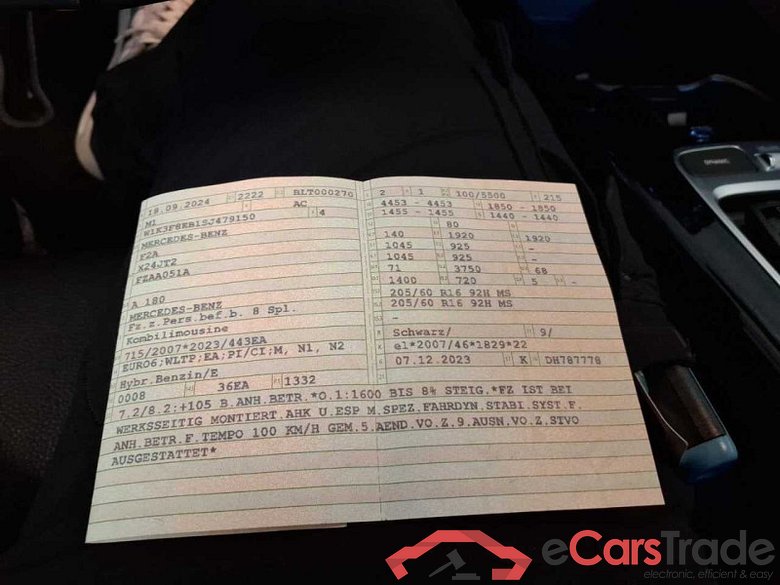 19.09.2024 2222 BLT000270
M1 AC
W1K3F8EB1SJ479150 4
MERCEDES-BENZ
F2A
X24JT2
FZAA051A
A 180
MERCEDES-BENZ
Fz.z.Pers.bef.b. 8 Spl.
Kombilimousine
715/2007*2023/443EA
EURO6;WLTP;EA;PI/CI;M, N1, N2
Hybr.Benzin/E
0008 36EA 1332
2 1 100/5500 215
4453 - 4453 1850 - 1850
1455 - 1455 1440 - 1440
80
140 1920 1920
1045 925 -
1045 925 -
71 3750 68
1400 720 5 -
205/60 R16 92H MS
205/60 R16 92H MS
-
Schwarz/ 9/
e1*2007/46*1829*22
07.12.2023 K DH787778
7.2/8.2:+105 B.ANH.BETR.*O.1:1600 BIS 8% STEIG.*FZ IST BEI
WERKSSEITIG MONTIERT.AHK U.ESP M.SPEZ.FAHRDYN.STABI.SYST.F.
ANH.BETR.F.TEMPO 100 KM/H GEM.5.AEND.VO.Z.9.AUSN.VO.Z.STVO
AUSGESTATTET*
DYNAMIC
eCarsTrade
electronic, efficient & easy